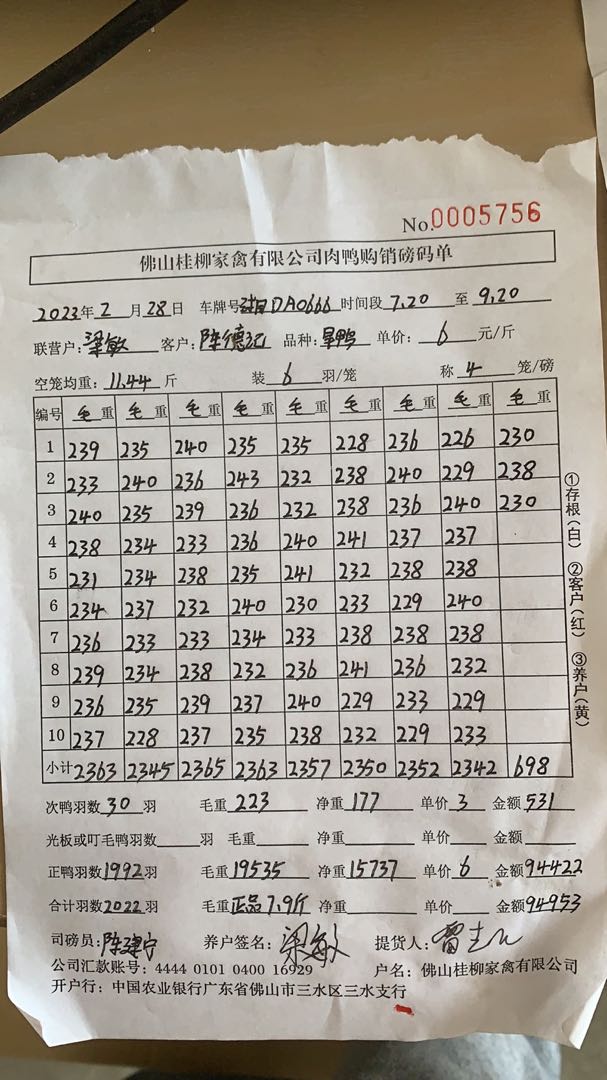 No.0005756
佛山桂柳家禽有限公司肉鸭购销磅码单
2023年2月28日 车牌号 DA0666 时间段 7.20 至 9.20
联营户:梁敏 客户:陈德记 品种:旱鸭 单价:6元/斤
空笼均重:11.44斤 装6羽/笼 称4笼/磅
编号 毛重 毛重 毛重 毛重 毛重 毛重 毛重 毛重 毛重
1 239 235 240 235 235 228 236 226 230
2 233 240 236 243 232 238 240 229 238
3 240 235 239 236 232 238 236 240 230
4 238 234 233 236 240 241 237 237
5 231 234 238 235 241 232 238 238
6 234 237 232 240 230 233 229 240
7 236 233 233 234 233 238 238 238
8 239 234 238 232 236 241 236 232
9 236 235 239 237 240 229 233 229
10 237 228 237 235 238 232 229 233
小计 2363 2345 2365 2363 2357 2350 2352 2342 698
次鸭羽数30羽 毛重223 净重177 单价3 金额531
光板或叮毛鸭羽数 羽 毛重 净重 单价 金额
正鸭羽数1992羽 毛重19535 净重15737 单价6 金额94422
合计羽数2022羽 毛重正品7.9斤 净重 单价 金额94953
司磅员:陈建宁 养户签名:梁敏 提货人:
公司汇款账号:4444 0101 0400 16929 户名:佛山桂柳家禽有限公司
开户行:中国农业银行广东省佛山市三水区三水支行
①存根(白) ②客户(红) ③养户(黄)